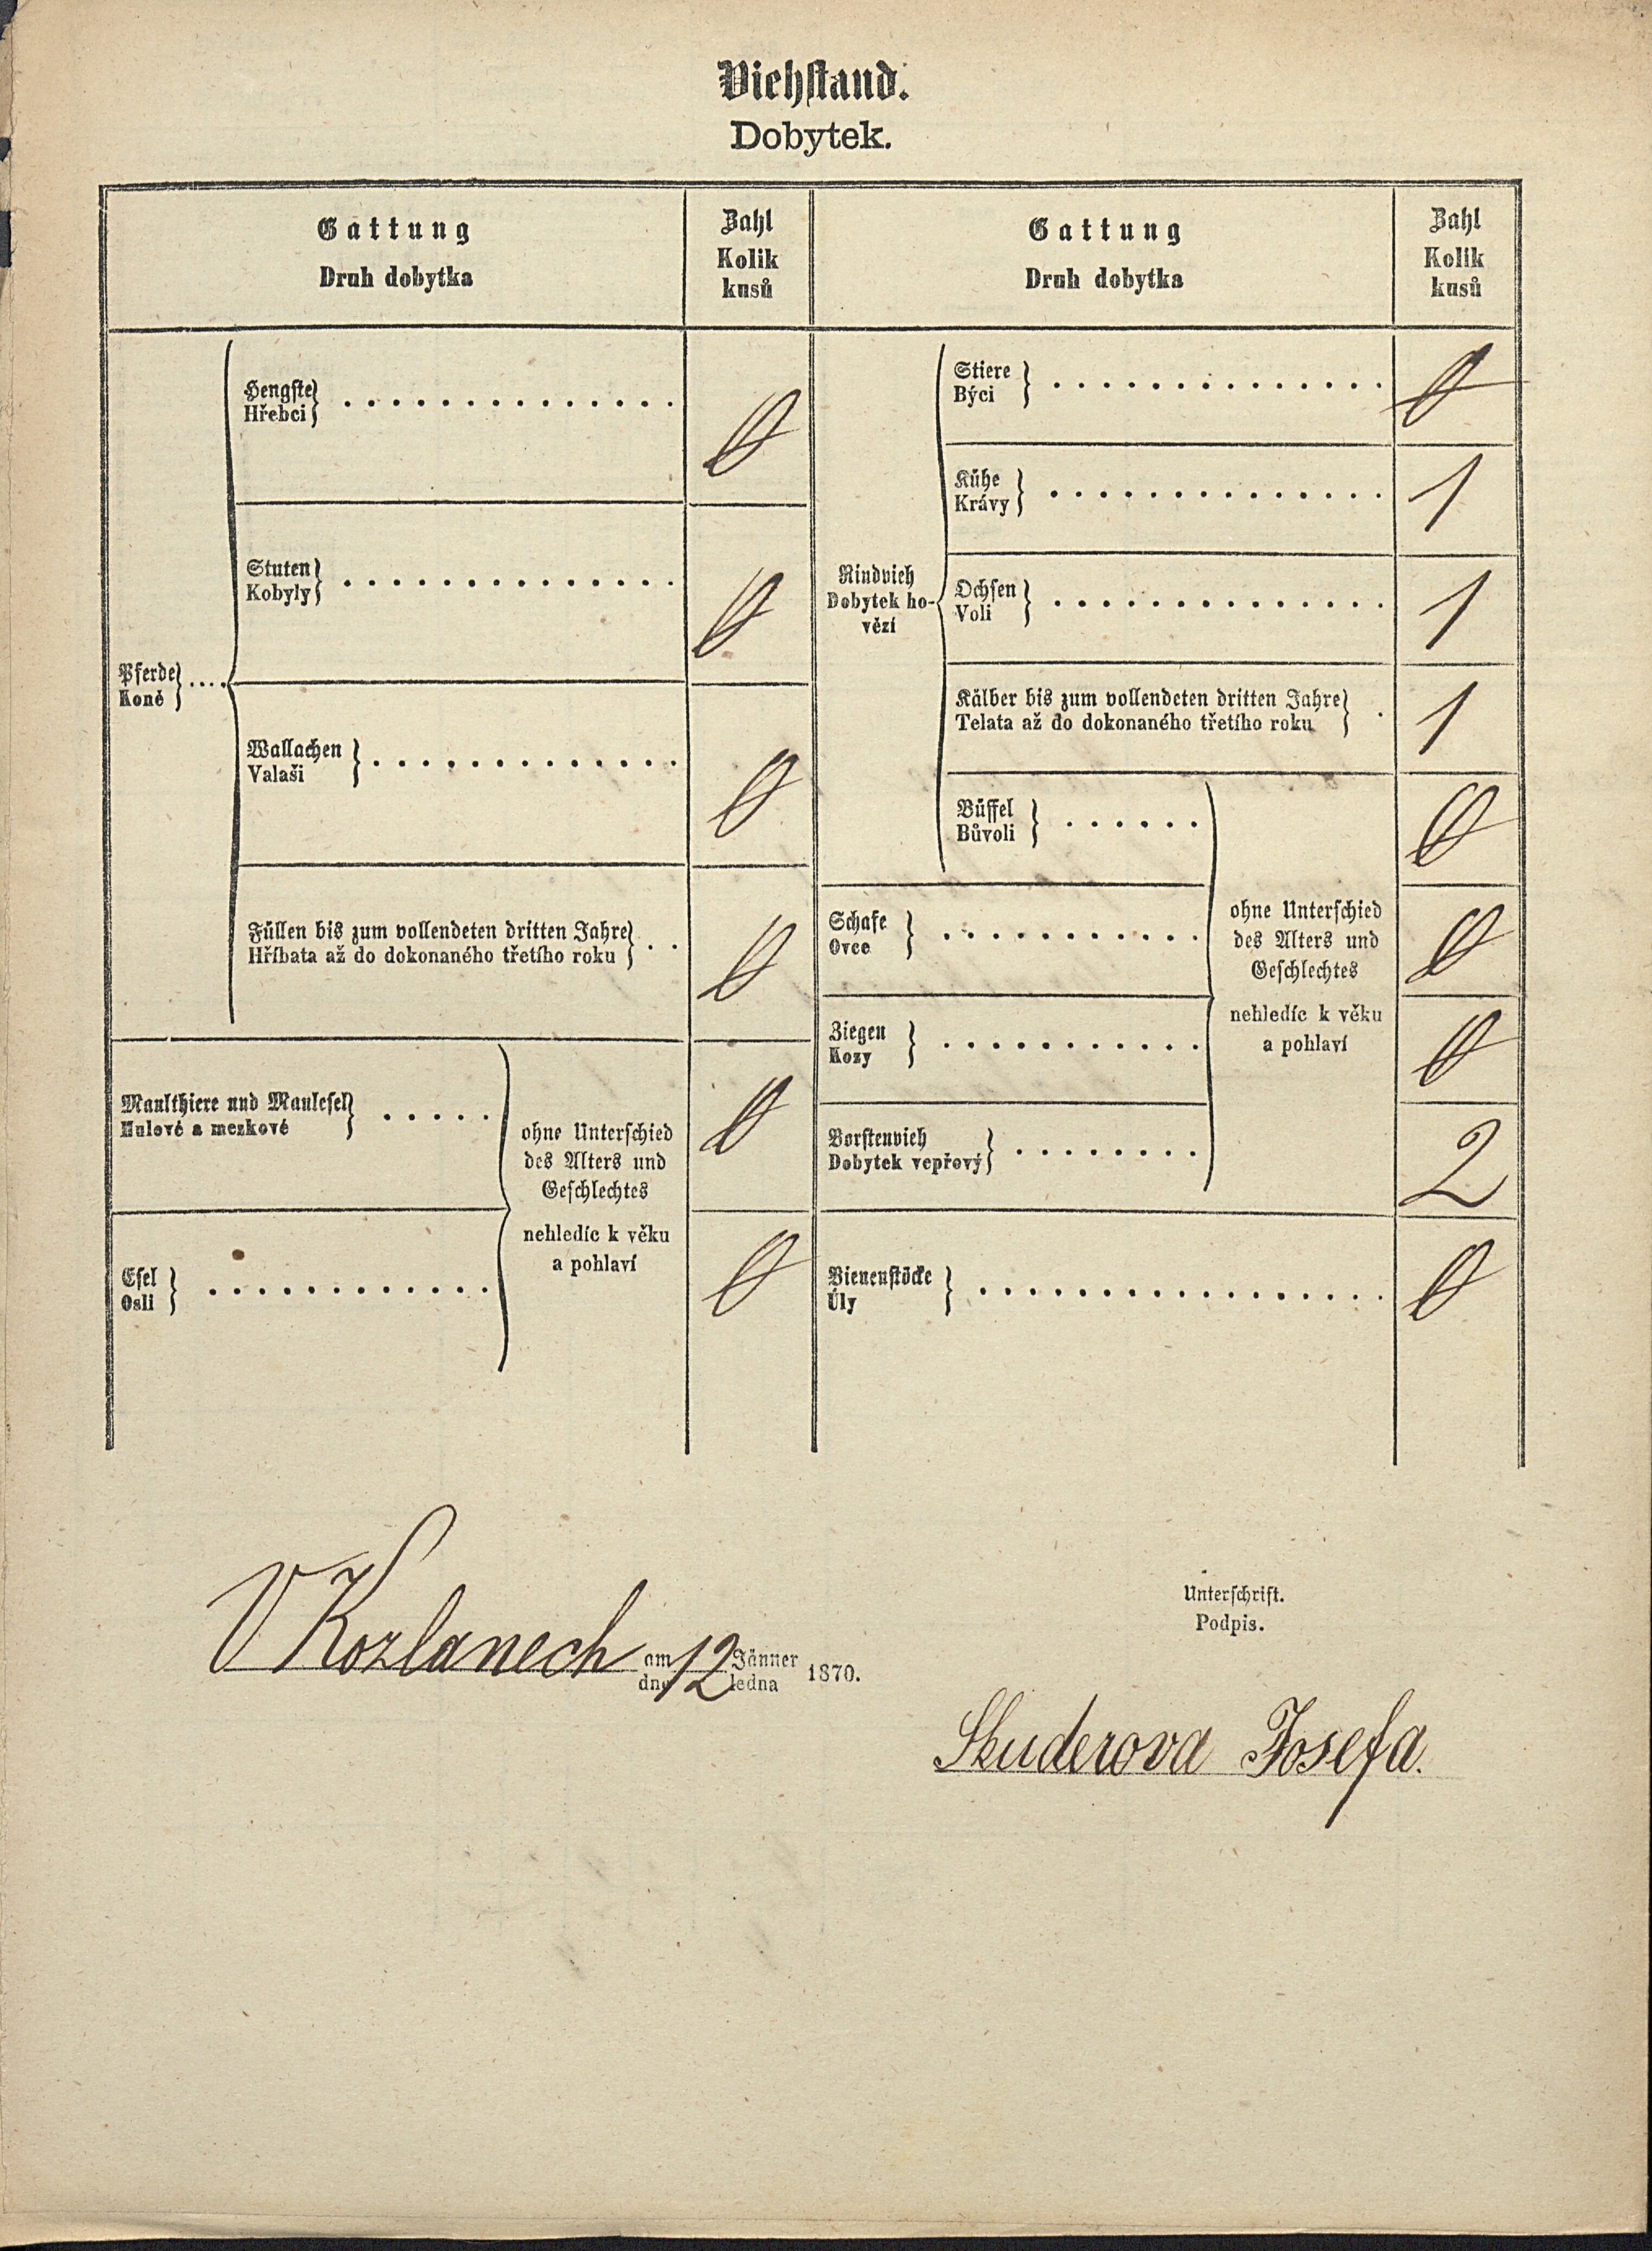 Viehstand.
Dobytek.
Gattung
Druh dobytka
Zahl
Kolik
kusů
Gattung
Druh dobytka
Zahl
Kolik
kusů
Pferde
Koně
Hengste
Hřebci
0
Stuten
Kobyly
0
Wallachen
Valaši
0
Füllen bis zum vollendeten dritten Jahre
Hříbata až do dokonaného třetího roku
0
Maulthiere und Maulesel
Mulové a mezkové
0
Esel
Osli
0
ohne Unterschied
des Alters und
Geschlechtes
nehledíc k věku
a pohlaví
Rindvieh
Dobytek ho-
vězí
Stiere
Býci
0
Kühe
Krávy
1
Ochsen
Voli
1
Kälber bis zum vollendeten dritten Jahre
Telata až do dokonaného třetího roku
1
Büffel
Bůvoli
0
Schafe
Ovce
0
Ziegen
Kozy
0
Borstenvieh
Dobytek vepřový
2
ohne Unterschied
des Alters und
Geschlechtes
nehledíc k věku
a pohlaví
Bienenstöcke
Úly
0
V Kozlanech am 12 Jänner 1870.
dne ledna
Unterschrift.
Podpis.
Skuderova Josefa.